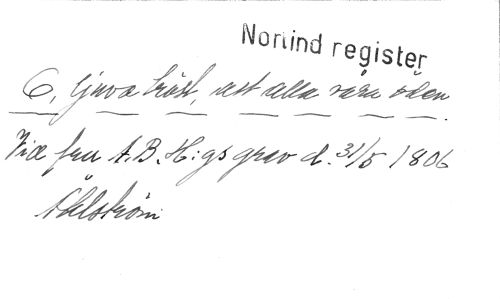 Norlind register
O, ljuva tröst, att alla våra öden
Vid fru A. B. H:gs grav d. 31/5 1806
Åhlström